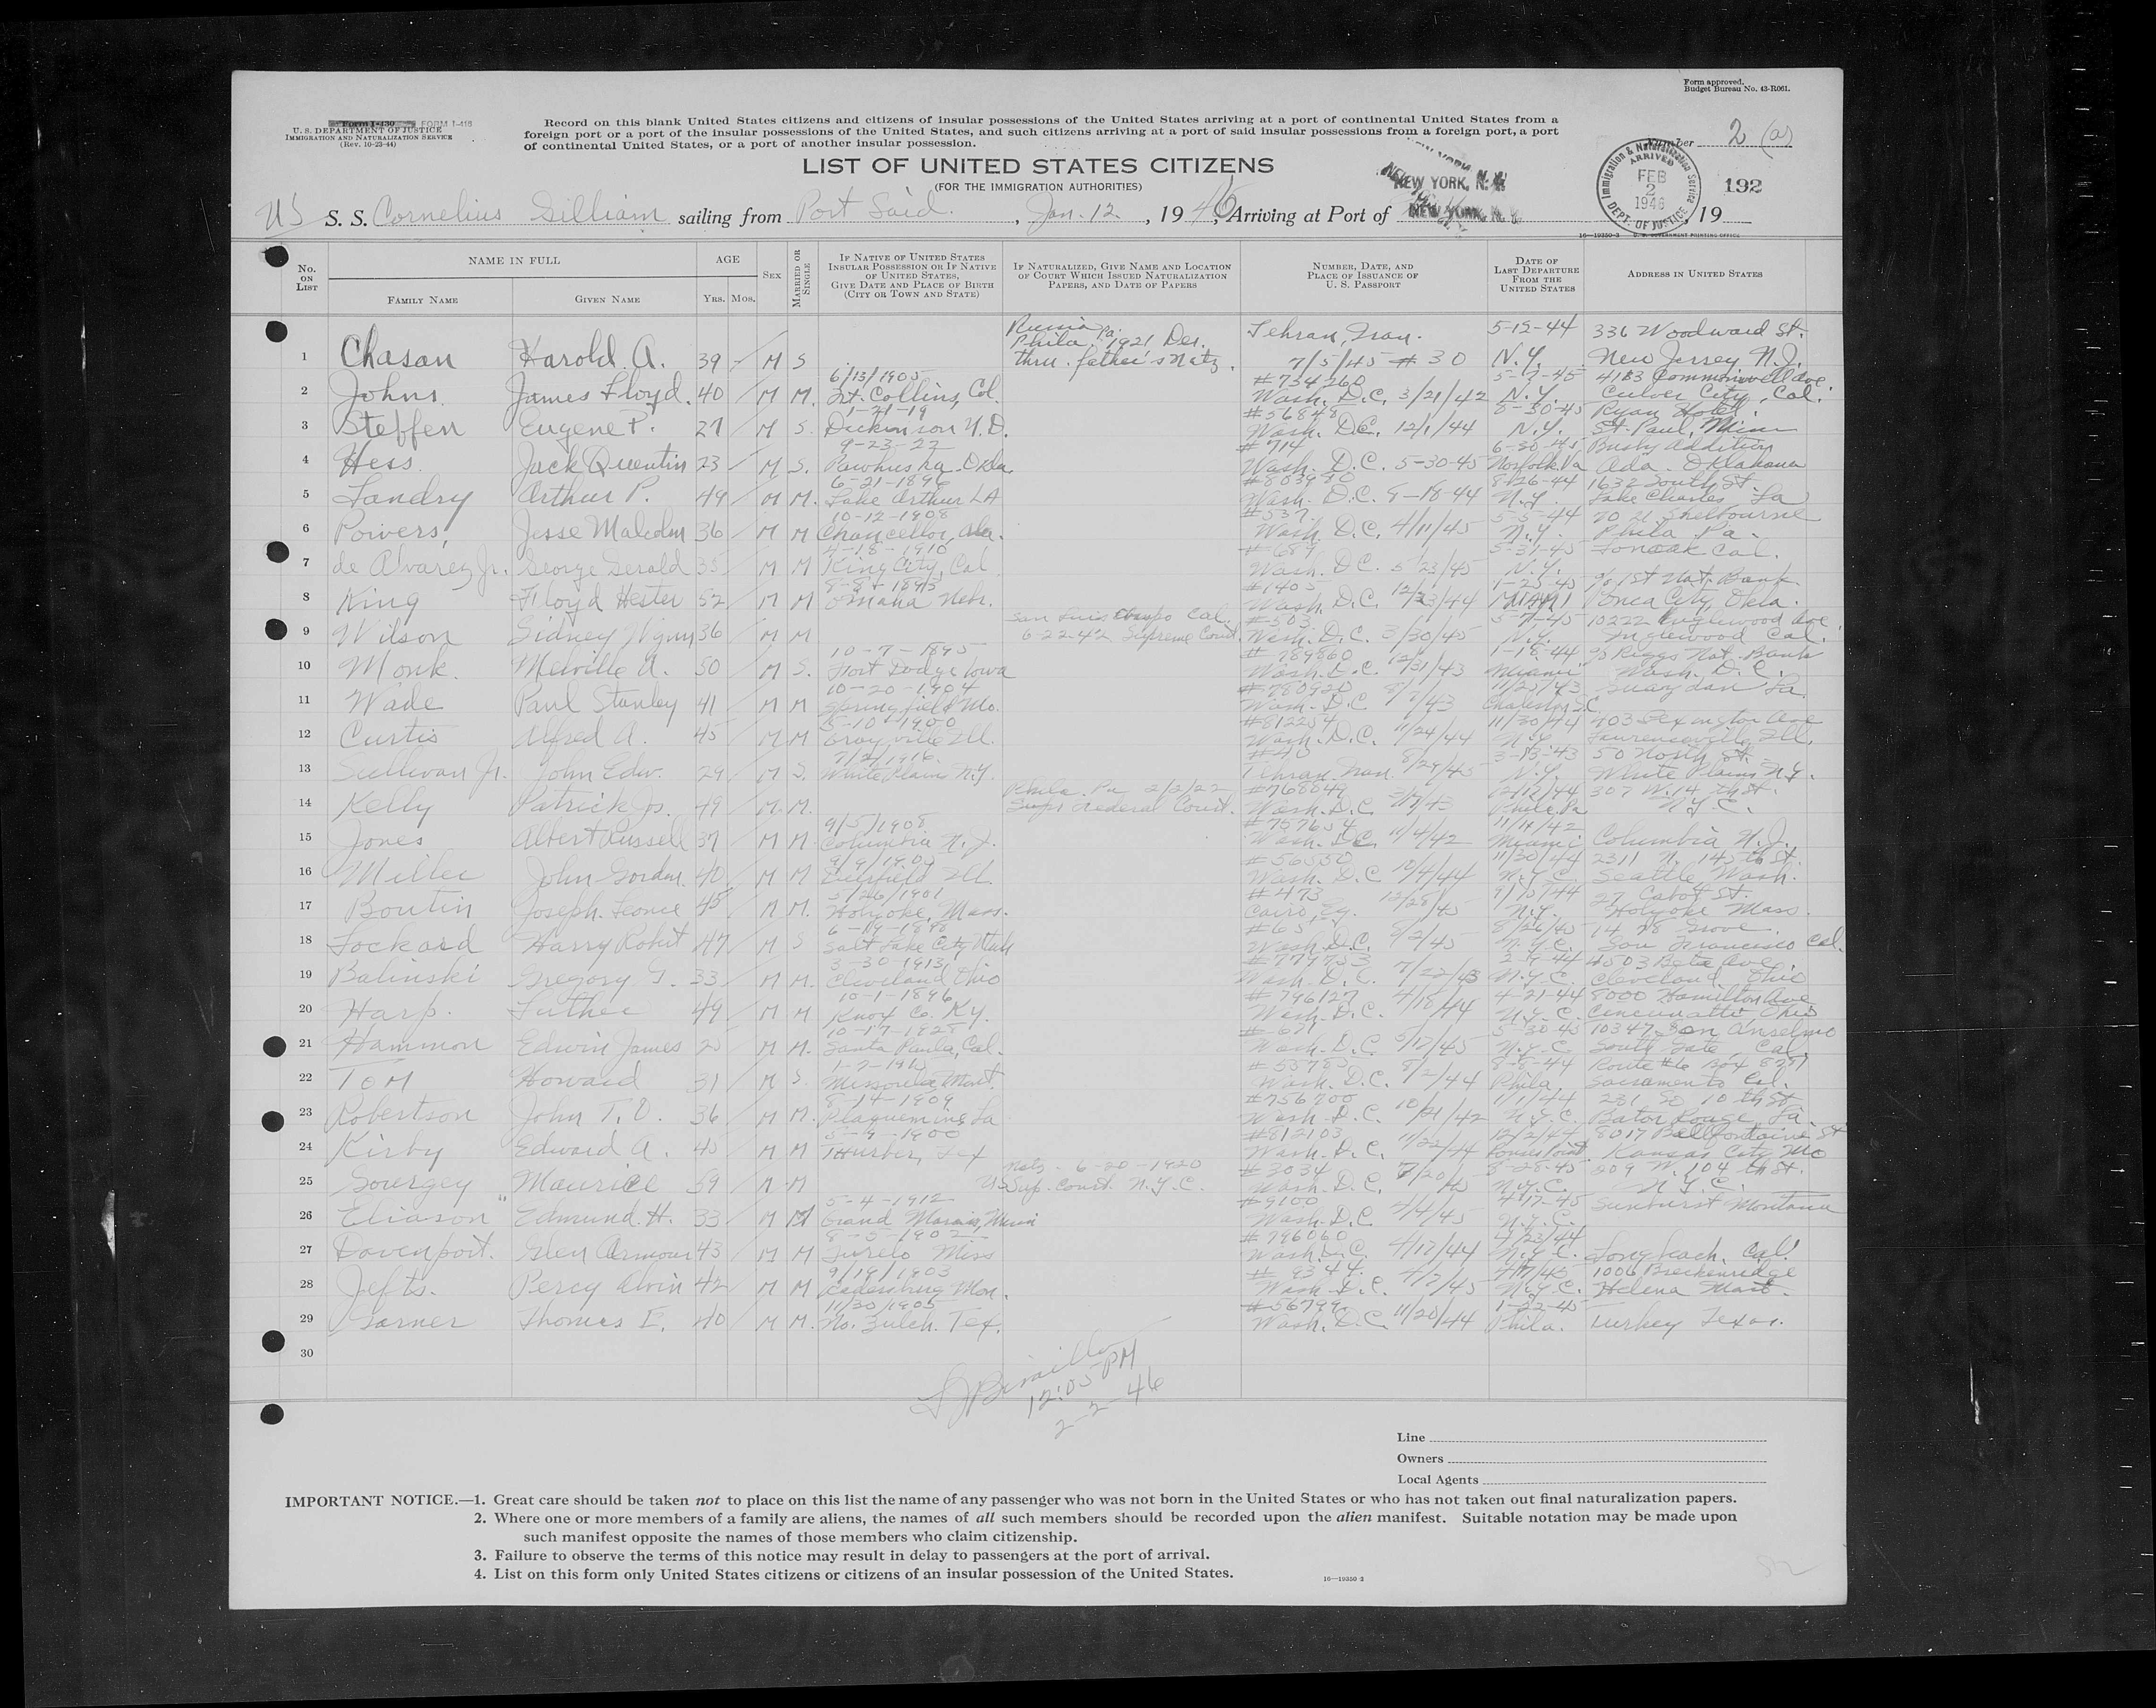 Form approved.
Budget Bureau No. 43-R061.
Form I-430 FORM I-418
U. S. DEPARTMENT OF JUSTICE
IMMIGRATION AND NATURALIZATION SERVICE
(Rev. 10-23-44)
Record on this blank United States citizens and citizens of insular possessions of the United States arriving at a port of continental United States from a
foreign port or a port of the insular possessions of the United States, and such citizens arriving at a port of said insular possessions from a foreign port, a port
of continental United States, or a port of another insular possession.
Number 2 (a)
LIST OF UNITED STATES CITIZENS
(FOR THE IMMIGRATION AUTHORITIES)
Immigration & Naturalization Service ARRIVED FEB 2 1946 DEPT. OF JUSTICE
192
US S. S. Cornelius Gilliam sailing from Port Said. , Jan. 12 , 1946, Arriving at Port of NEW YORK, N. Y. , 19
16—19350-3 U. S. GOVERNMENT PRINTING OFFICE
No. ON LIST
NAME IN FULL
FAMILY NAME
GIVEN NAME
AGE
YRS. MOS.
SEX
MARRIED OR SINGLE
IF NATIVE OF UNITED STATES INSULAR POSSESSION OR IF NATIVE OF UNITED STATES, GIVE DATE AND PLACE OF BIRTH (CITY OR TOWN AND STATE)
IF NATURALIZED, GIVE NAME AND LOCATION OF COURT WHICH ISSUED NATURALIZATION PAPERS, AND DATE OF PAPERS
NUMBER, DATE, AND PLACE OF ISSUANCE OF U. S. PASSPORT
DATE OF LAST DEPARTURE FROM THE UNITED STATES
ADDRESS IN UNITED STATES
1 Chasan Harold A. 39 M S Russia Phila. Pa. 1921 Der. thru father's natz. Tehran, Iran. 7/5/45 # 30 5-12-44 N.Y. 336 Woodward St. New Jersey N.J.
2 Johns James Floyd. 40 M M. 6/13/1905 Ft. Collins, Col. #734260 Wash. D.C. 3/21/42 5-7-45 N.Y. Culver City, Cal.
3 Steffen Eugene P. 27 M S. 1-21-19 Dickinson N.D. #56848 Wash. D.C. 12/1/44 8-30-45 N.Y. Ryan Hotel. St. Paul, Minn
4 Hess Jack Quentin 23 M S. 9-23-22 Pawhuska Okla. #714 Wash. D.C. 5-30-45 6-30-45 Norfolk Va Busby Addition Ada. Oklahoma
5 Landry Arthur P. 49 M M. 6-21-1896 Lake Arthur LA Wash. D.C. 8-18-44 8/26-44 N.Y. 1632 South St Lake Charles La
6 Powers, Jesse Malcolm 36 M M 10-12-1908 Chancellor, Ala. #537 Wash. D.C. 4/11/45 N.Y. Phila Pa.
7 de Alvarez Jr. George Gerald 35 M M 4-18-1910 King City, Cal #687 Wash. D.C. 5/23/45 5-31-45 N.Y. Cal.
8 King Floyd Hester 52 M M 8-8-1893 Omaha Nebr. #1405 Wash. D.C. 12/23/44 1-25-45 MIAMI % 1st Nat. Bank Ponca City, Okla.
9 Wilson Sidney 36 M M San Luis Obispo Cal. 6-22-42 Supreme Court. #503 Wash. D.C. 3/30/45 5-7-45 N.Y. 10222 Inglewood Ave Inglewood Cal.
10 Monk. Melville A. 50 M S. 10-7-1895 Fort Dodge Iowa # 789860 Wash. D.C. 12/31/43 1-18-44 Miami % Riggs Nat. Bank Wash. D.C.
11 Wade Paul Stanley 41 M M 10-20-1904 Springfield Mo. Wash. D.C. 11/25/43 Charleston S.C. Gueydan La.
12 Curtis Alfred A. 45 M M 1900 Grayville Ill. #812254 Wash. D.C. 11/24/44 11/30/44 N.Y. Lexington Ave Lawrenceville, Ill.
13 Sullivan Jr. John Edw. 29 M S. 7/2/1916. White Plains N.Y. #40 Tehran Iran 8/29/45 N.Y. 50 North St. White Plains N.Y.
14 Kelly Patrick Jos. 49 M. M. Phila. Pa 2/2/22 Federal Court. #768049 Wash. D.C. Phila. Pa 307 W. 14 th St. N.Y.C.
15 Jones Albert Russell 37 M M 9/5/1908 Columbia N.J. #757654 Wash. D.C. 11/4/42 Miami Columbia N.J.
16 Miller John Gordon. 40 M M Ill. Wash. D.C. 10/4/44 11/30/44 N.Y.C. 2311 N. 145th St. Seattle, Wash.
17 Boutin Joseph M M. 5/26/1901 Holyoke, Mass. #473 Cairo, Eg. 12/28/45 N.Y. 27 Cabot St. Holyoke Mass.
18 Lockard Harry Robert 47 M S Salt Lake City Utah Wash. D.C. 8/2/45 8/26/45 N.Y.C. Grove. San Francisco Cal.
19 Balinski Gregory 33 M M. 3-30-1913 Cleveland Ohio Wash. D.C. 7/22/43 2-9-44 N.Y.C. 4503 Beta Ave. Cleveland, Ohio
20 Harp. Luther 49 M M 10-1-1896 Knox Co. Ky. # 796127 Wash. D.C. 4/18/44 4-21-44 N.Y.C. 8000 Hamilton Ave Cincinnatti, Ohio
21 Hammon Edwin James M M. Santa Paula, Cal. Wash. D.C. 5/17/45 N.Y.C. 10347 San Anselmo South Gate, Cal
22 TOM Howard 31 M S Missoula, Mont. Wash. D.C. 8/2/44 8-8-44 Phila. Route #6 Box Sacramento Cal.
23 Robertson John T. 36 M M. 8-14-1909 Plaquemine, La #756700 Wash. D.C. 10/21/42 N.Y.C. 10 th St. Baton Rouge, La.
24 Kirby Edward A. 45 M M 1900 Thurber, Tex #812103 Wash. D.C. 11/22/44 12/2/44 8017 Bellfontaine St Kansas City Mo
25 Gourgey Maurice 59 M M natz - 6-20-1920 U.S. Sup. Court. N.Y.C. #3034 Wash. D.C. 8-28-45 N.Y.C. 209 W. 104 th St. N.Y.C.
26 Eliason Edmund. H. 33 M M 5-4-1912 Grand Marais, Minn #9100 Wash. D.C. N.Y.C. Sunburst Montana
27 Davenport. Glen Armour 43 M M 8-5-1902 Miss # 796060 Wash. D.C. 4/17/44 4/23/44 N.Y.C. Long beach. Cal.
28 Jefts. Percy Alvin 42 M M 9/19/1903 Mon. # 9344 Wash. D.C. N.Y.C. 1006 Breckenridge Helena Mont.
29 Garner Thomas E. 40 M M. 11/30/1905 No. Zulch. Tex. #56799 Wash. D.C. 11/20/44 1-22-45 Phila. Turkey Texas.
30
12:05 PM
2-2-46
Line
Owners
Local Agents
IMPORTANT NOTICE.—1. Great care should be taken not to place on this list the name of any passenger who was not born in the United States or who has not taken out final naturalization papers.
2. Where one or more members of a family are aliens, the names of all such members should be recorded upon the alien manifest. Suitable notation may be made upon
such manifest opposite the names of those members who claim citizenship.
3. Failure to observe the terms of this notice may result in delay to passengers at the port of arrival.
4. List on this form only United States citizens or citizens of an insular possession of the United States.
16—19350-2